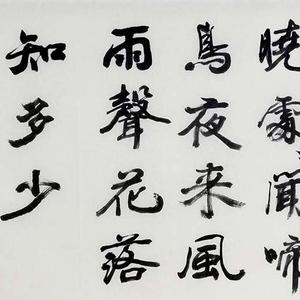 曉處々聞啼
鳥夜来風
雨聲花落
知多少